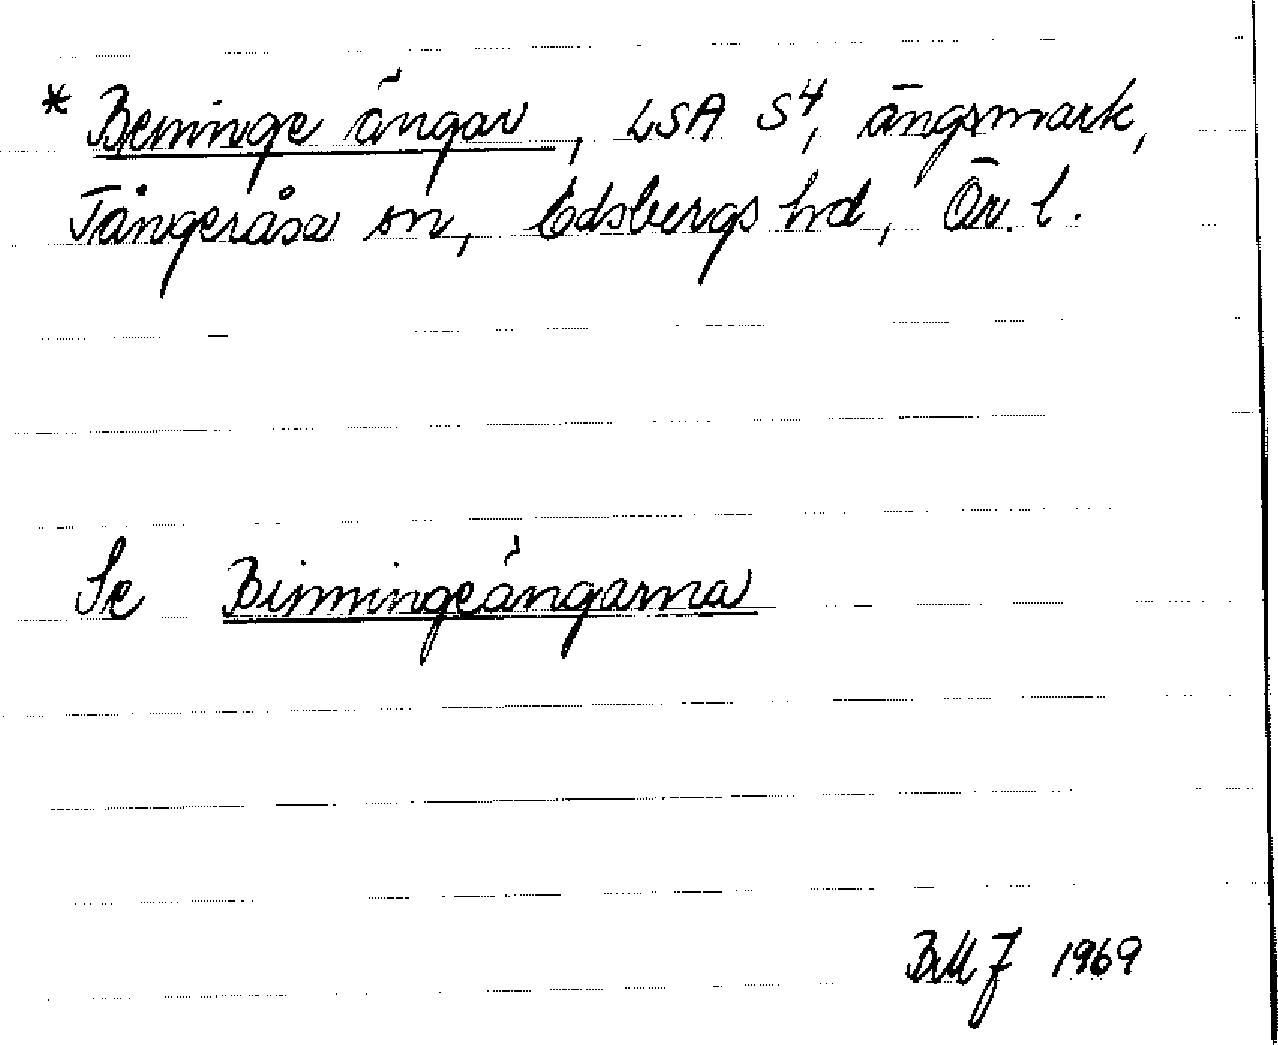 * Beminge ängar, LSA S4, ängsmark,
Tångeråsa sn, Edsbergs hd, Ör. l.
Se Binningeängarna
BMJ 1969